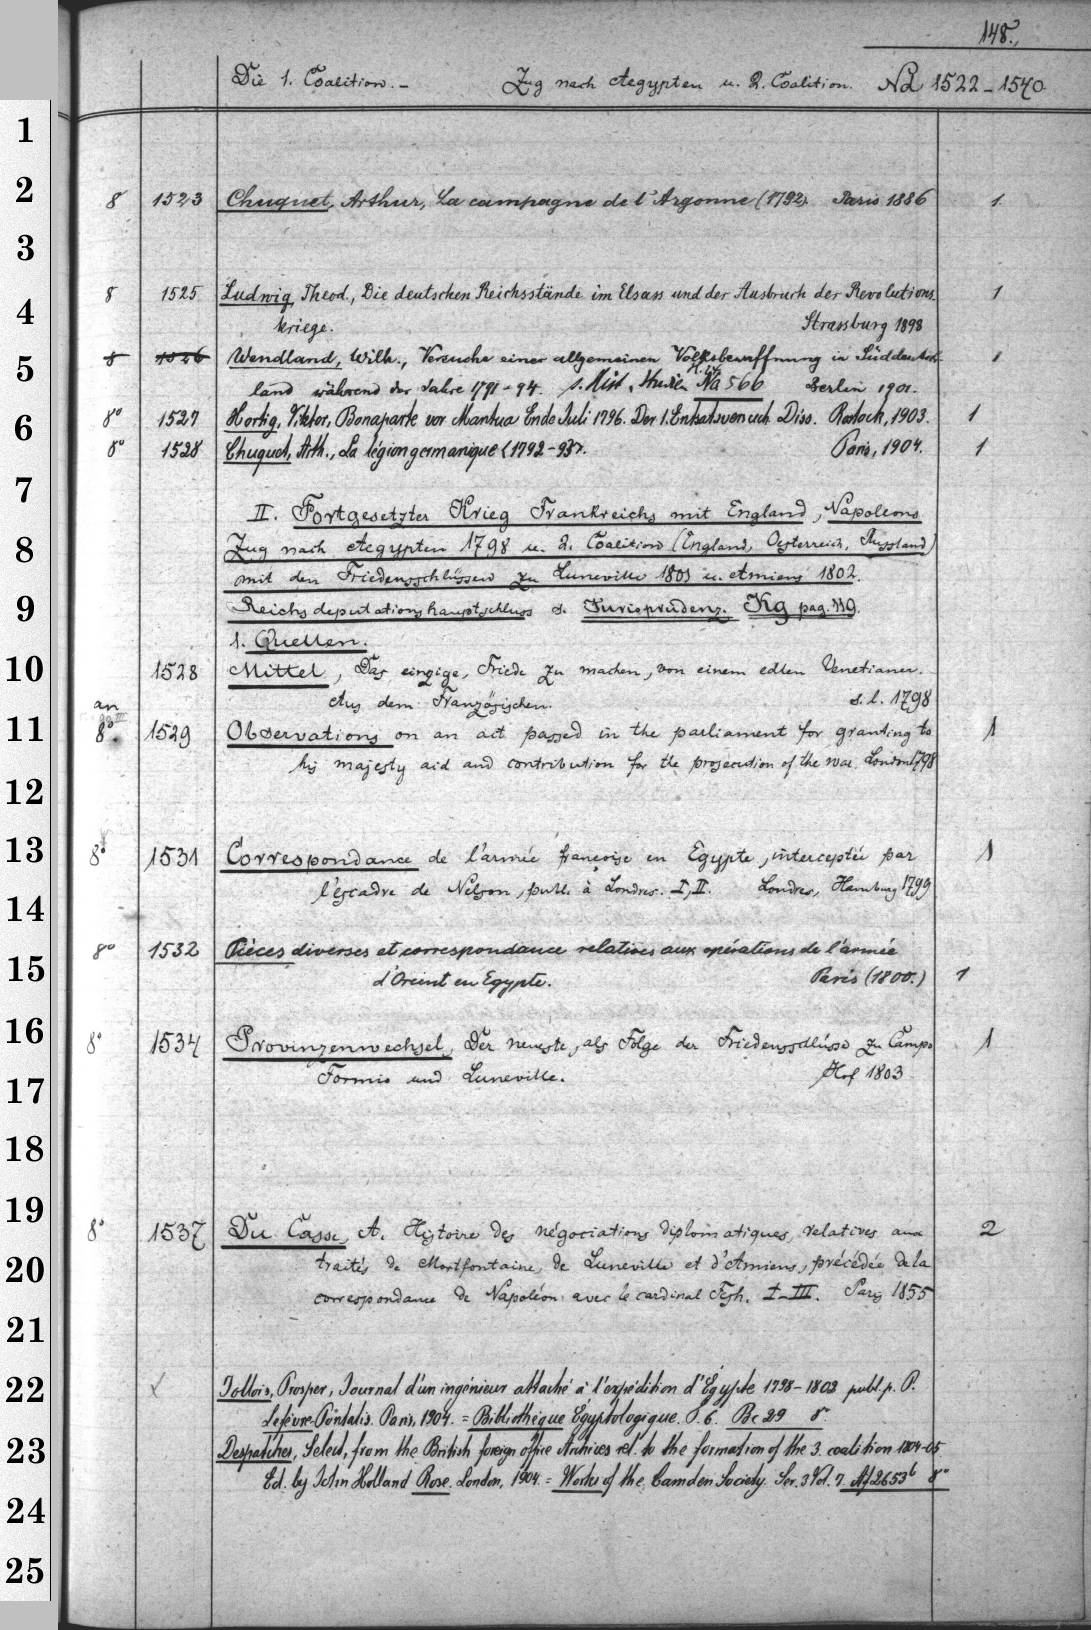 148.
Die 1. Coalition. – Zug nach Aegypten u. 2. Coalition. Nd 1522–1540
1
2
3
4
5
6
7
8
9
10
11
12
13
14
15
16
17
18
19
20
21
22
23
24
25
8 1523 Chuquet, Arthur, La campagne de l'Argonne (1792). Paris 1886 1
8 1525 Ludwig, Theod., Die deutschen Reichsstände im Elsass und der Ausbruch der Revolutions 1
kriege. Strassburg 1898
8 1526 Wendland, Wilh., Versuche einer allgemeinen Volksbewaffnung in Süddeutsch- 1
land während der Jahre 1791–94. s. Hist. Studien Na 566 Berlin 1901.
8° 1527 Hortig, Viktor, Bonaparte vor Mantua Ende Juli 1796. Der 1. Entsatzversuch Diss. Rostock, 1903. 1
8° 1528 Chuquet, Arth., La légion germanique (1792–93). Paris, 1904. 1
II. Fortgesetzter Krieg Frankreichs mit England, Napoleons
Zug nach Aegypten 1798 u. 2. Coalition (England, Oesterreich, Russland)
mit den Friedensschlüssen zu Luneville 1801 u. Amiens 1802.
Reichsdeputationshauptschluss s. Jurisprudenz. Kg pag. 119.
1. Quellen.
1528 Mittel, Das einzige, Friede zu machen, von einem edlen Venetianer.
Aus dem Französischen. s. l. 1798
an
8° 1529 Observations on an act passed in the parliament for granting to 1
his majesty aid and contribution for the prosecution of the war. London 1798
8° 1531 Correspondance de l'armée françoise en Egypte, interceptée par 1
l'escadre de Nelson, publ. à Londres. I, II. Londres, Hamburg 1799
8° 1532 Pièces diverses et correspondance relatives aux opérations de l'armée
d'Orient en Egypte. Paris (1800.) 1
8° 1534 Provinzenwechsel, Der neueste, als Folge der Friedensschlüsse zu Campo 1
Formio und Luneville. Hof 1803
8° 1537 Du Casse, A. Histoire des négociations diplomatiques relatives aux 2
traités de Mortfontaine, de Luneville et d'Amiens, précédée de la
correspondance de Napoléon avec le cardinal Fesh. I–III. Paris 1855
Jollois, Prosper, Journal d'un ingénieur attaché à l'expédition d'Égypte 1798–1802 publ. p. P.
Lefèvre-Pontalis. Paris, 1904. = Bibliothèque Égyptologique. T. 6. Bc 29 8°
Despatches, Select, from the British foreign office Archives rel. to the formation of the 3. coalition 1804–05
Ed. by John Holland Rose. London, 1904. = Works of the Camden Society. Ser. 3 Vol. 7. Af 2653b 8°